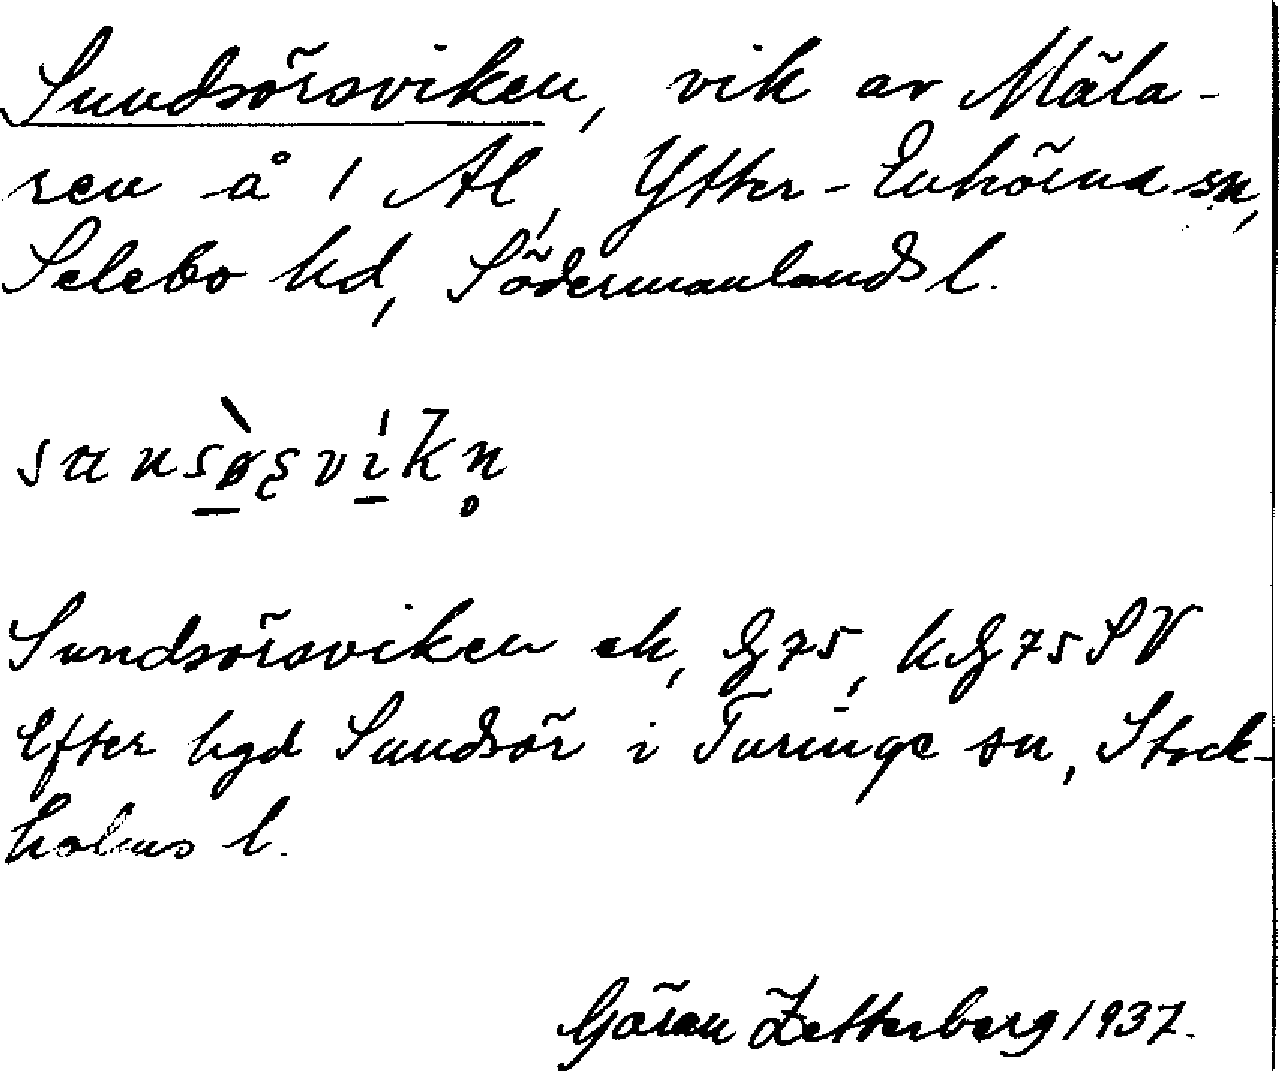 Sundsörsviken, vik av Mäla-
ren å 1 Al, Ytter-Enhörna sn,
Selebo hd, Södermanlands l.
Sundsörsviken ek, G75, KG75SV
Efter hgd Sundsör i Turinge sn, Stock-
holms l.
Göran Zetterberg 1937.